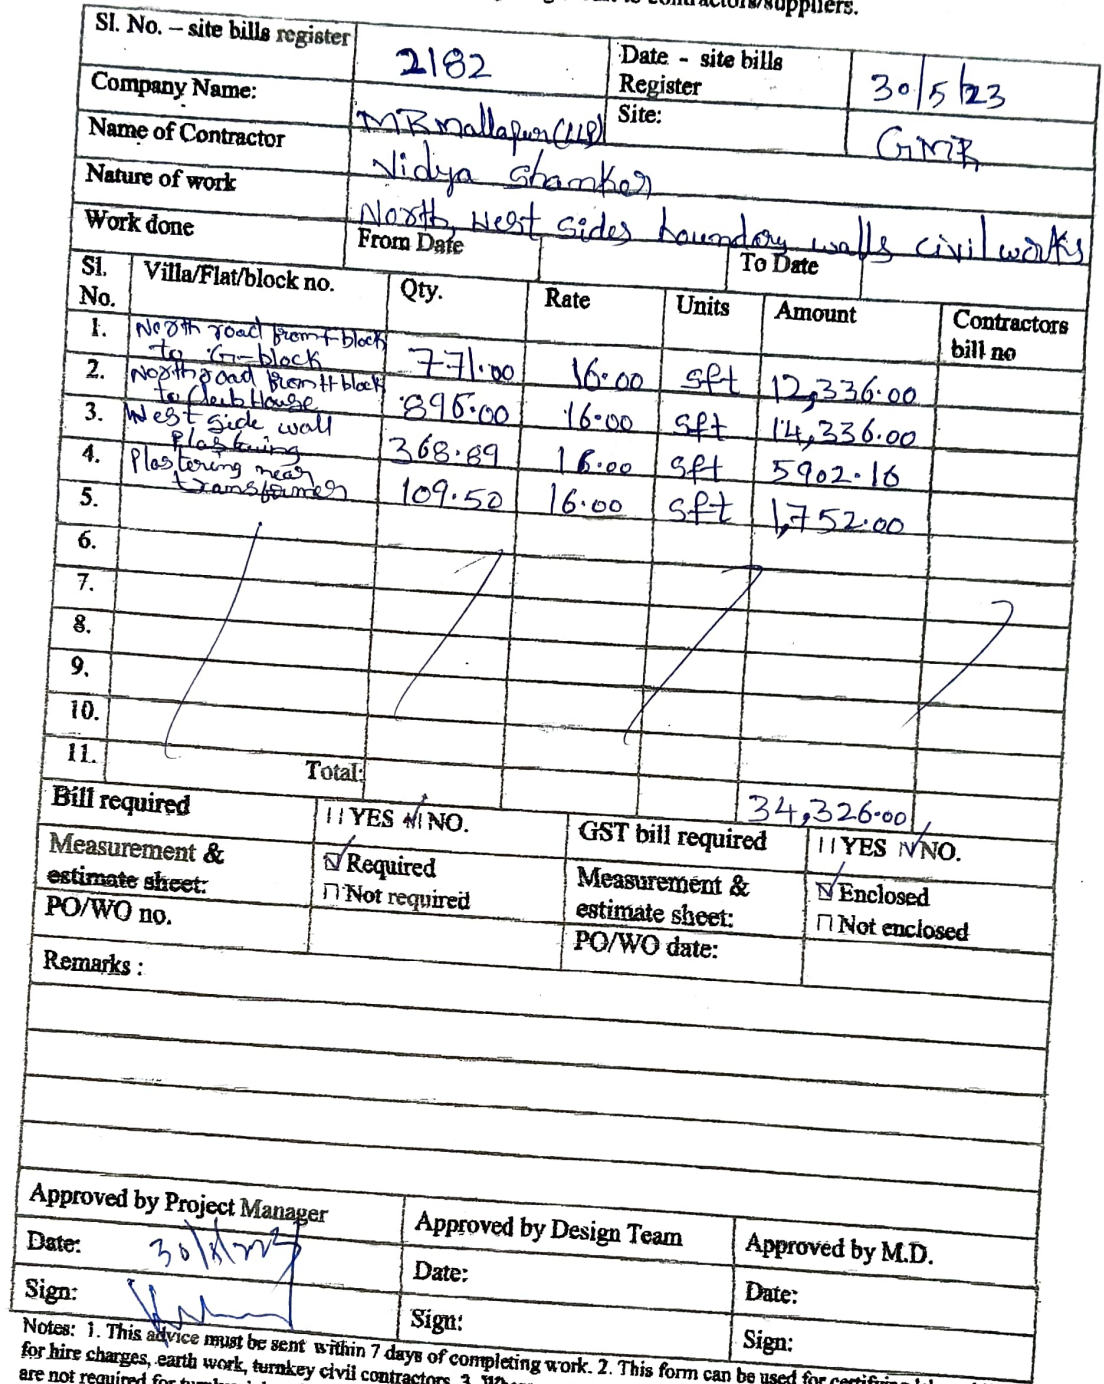 contractors/suppliers.
Sl. No. – site bills register 2182 Date - site bills Register 30/5/23
Company Name: MRMallapur(LLP) Site: GMR
Name of Contractor Vidya Shanker
Nature of work North, West sides boundary walls civil works
Work done From Date To Date
Sl. No. Villa/Flat/block no. Qty. Rate Units Amount Contractors bill no
1. North road from F-block to G-block 771.00 16.00 sft 12,336.00
2. North road from H block to Club House 896.00 16.00 sft 14,336.00
3. West side wall Plastering 368.89 16.00 sft 5902.16
4. Plastering near transformer 109.50 16.00 sft 1,752.00
5.
6.
7.
8.
9.
10.
11.
Total: 34,326.00
Bill required YES NO. GST bill required YES NO.
Measurement & estimate sheet: Required Measurement & estimate sheet: Enclosed
Not required Not enclosed
PO/WO no. PO/WO date:
Remarks :
Approved by Project Manager Approved by Design Team Approved by M.D.
Date: Date: Date:
Sign: Sign: Sign:
Notes: 1. This advice must be sent within 7 days of completing work. 2. This form can be used for certifying
for hire charges, earth work, turnkey civil contractors. 3.
are not required for